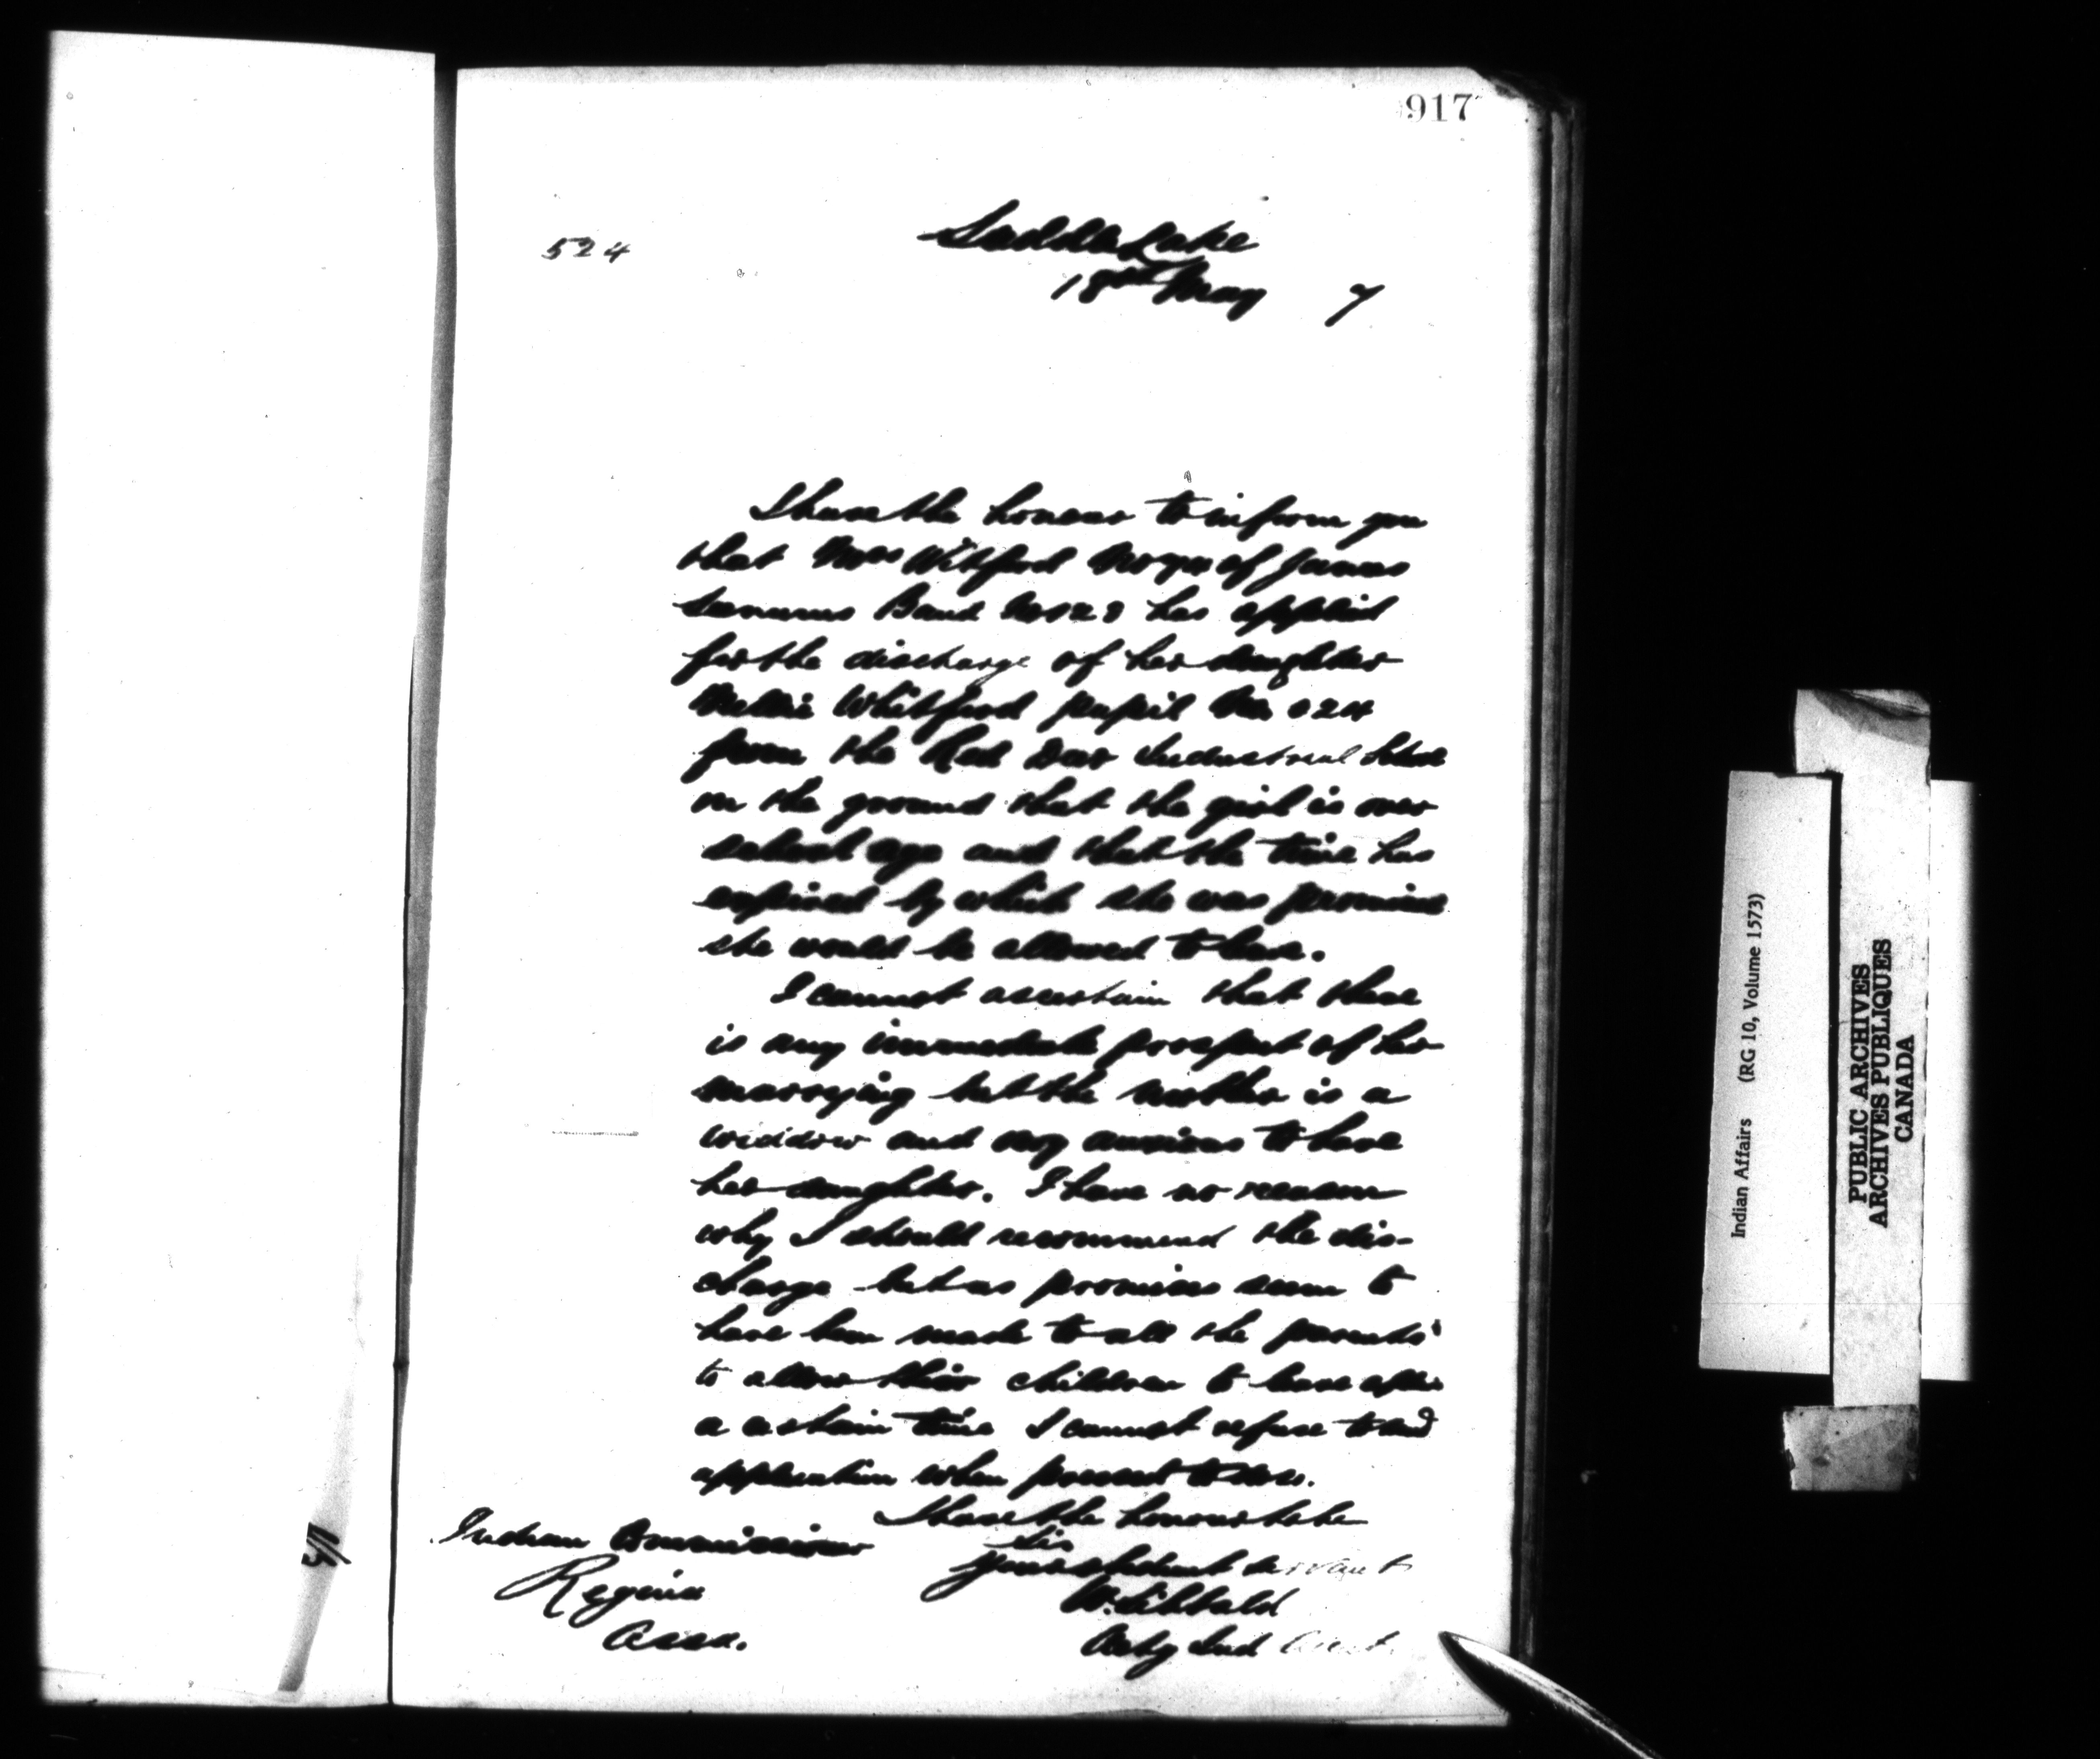 917
524
Saddle Lake
18th May 7
I have the honour to inform you
that Mrs Whitford No of James
Seenums Band No 128 has applied
for the discharge of her daughter
Nellie Whitford pupil No 024
from the Red Deer Industrial School
on the ground that the girl is over
school age and that the time has
expired by which she was promised
she would be allowed to leave.
I cannot ascertain that there
is any immediate prospect of her
marrying but the mother is a
widdow and very anxious to have
her daughter. I have no reason
why I should recommend the dis-
charge but as promises seem to
have been made to all the parents
to allow their children to leave after
a certain time I cannot refuse to send
application when present to me.
I have the honour to be
Sir
Your obedient servant
W. Sibbald
Actg Ind Agent.
Indian Commissioner
Regina
Assa.
Indian Affairs (RG 10, Volume 1573)
PUBLIC ARCHIVES
ARCHIVES PUBLIQUES
CANADA